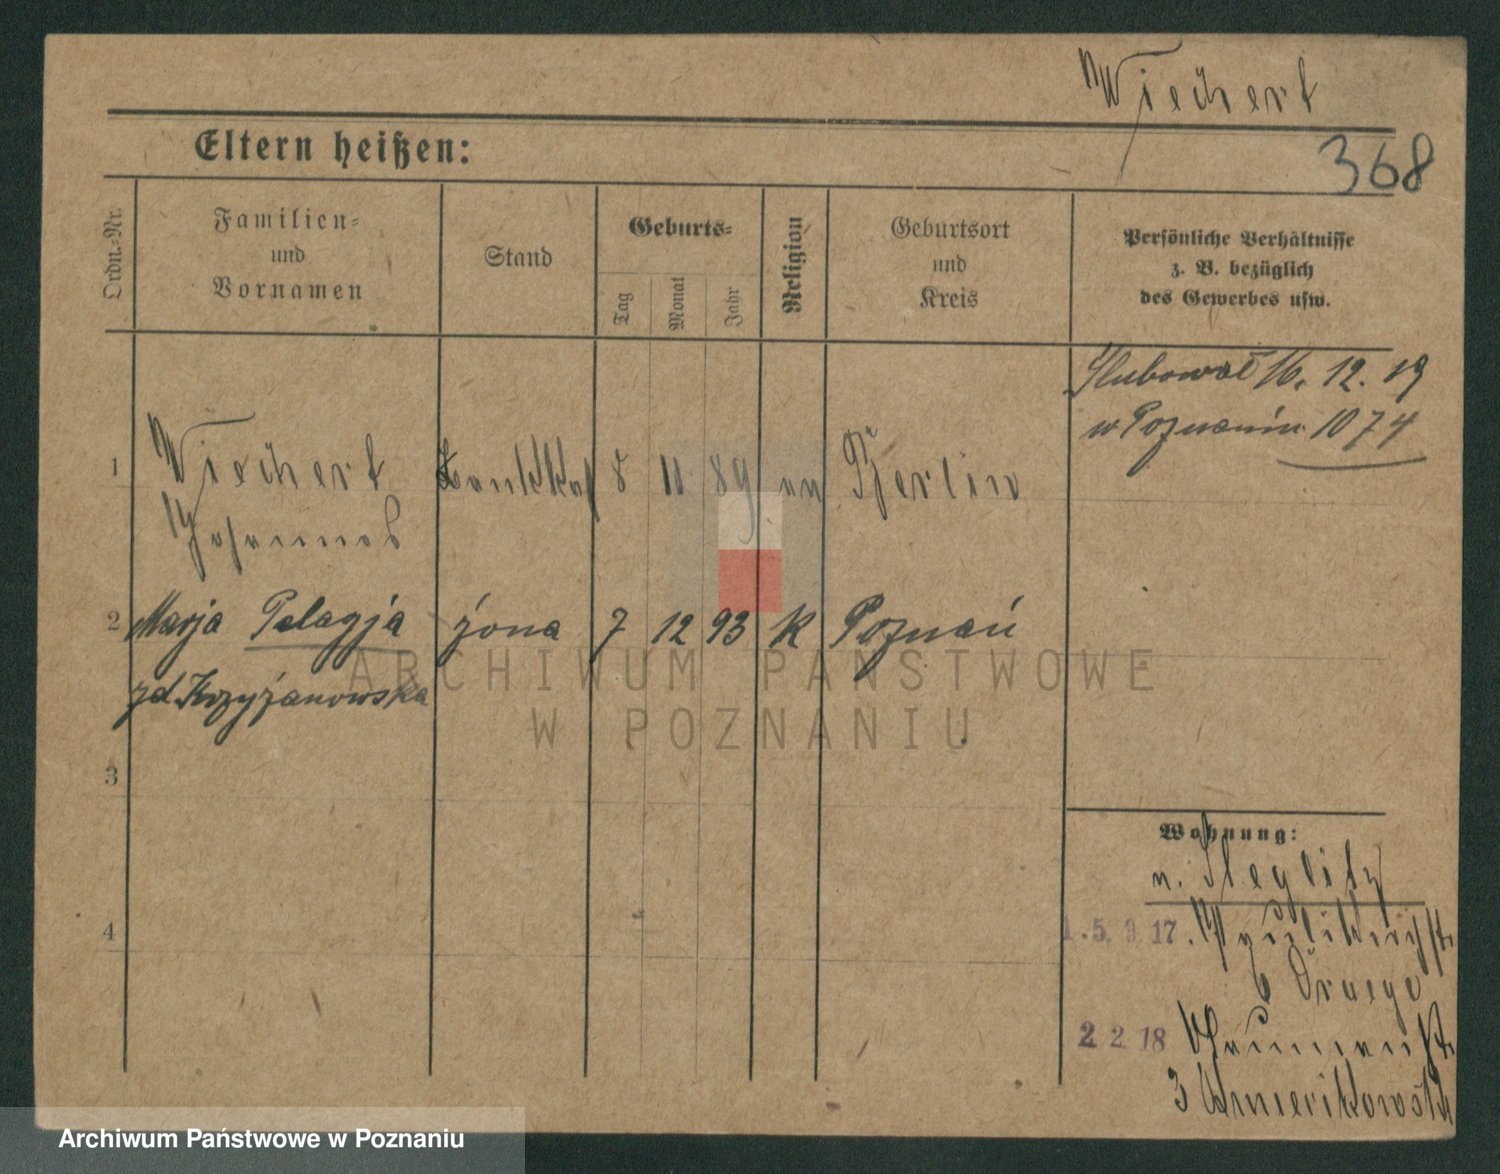 Wiechert
368
Eltern heißen:
Ordn.-Nr.
Familien-
und
Vornamen
Stand
Geburts-
Tag
Monat
Jahr
Religion
Geburtsort
und
Kreis
Persönliche Verhältnisse
z. B. bezüglich
des Gewerbes usw.
Ślubował 16. 12. 19
w Poznaniu 1074
1 Wiechert 8 11 89 Berlin
Johannes
2 Marja Pelagja żona 7 12 93 K Poznań
zd. Krzyżanowska
3
4
ARCHIWUM PAŃSTWOWE
W POZNANIU
Wohnung:
n. Steglitz
1.5. 9. 17.
6
2. 2. 18
3
Archiwum Państwowe w Poznaniu